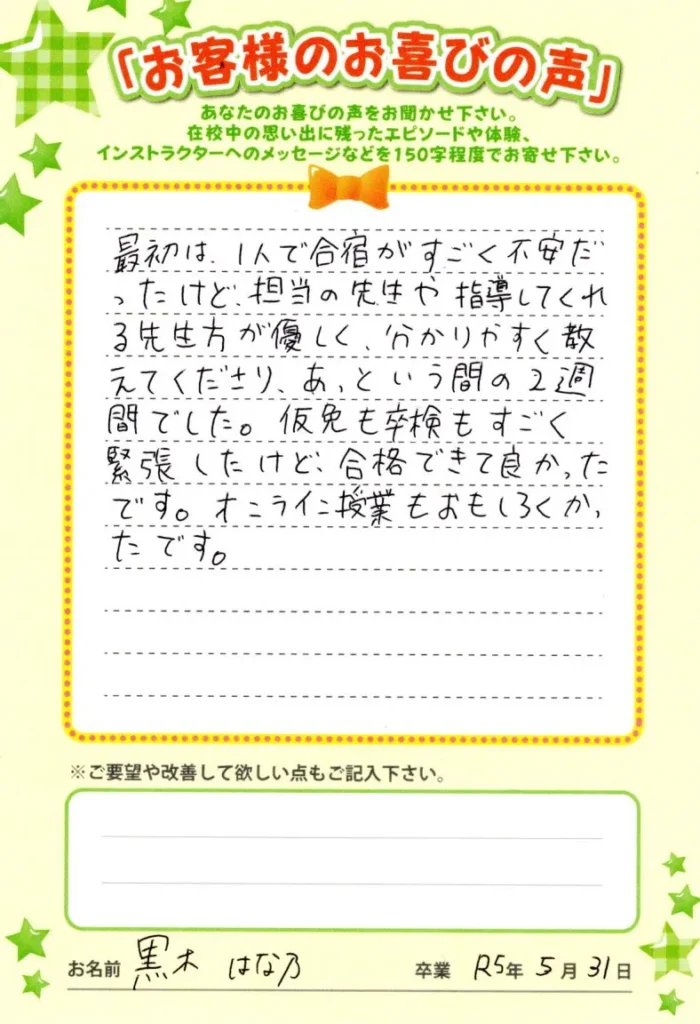 「お客様のお喜びの声」
あなたのお喜びの声をお聞かせ下さい。
在校中の思い出に残ったエピソードや体験、
インストラクターへのメッセージなどを150字程度でお寄せ下さい。
最初は、1人で合宿がすごく不安だ
ったけど、担当の先生や指導してくれ
る先生方が優しく、分かりやすく教
えてくださり、あっという間の2週
間でした。仮免も卒検もすごく
緊張したけど、合格できて良かった
です。オンライン授業もおもしろくかっ
たです。
※ご要望や改善して欲しい点もご記入下さい。
お名前 黒木 はな乃 卒業 R5年 5月 31日